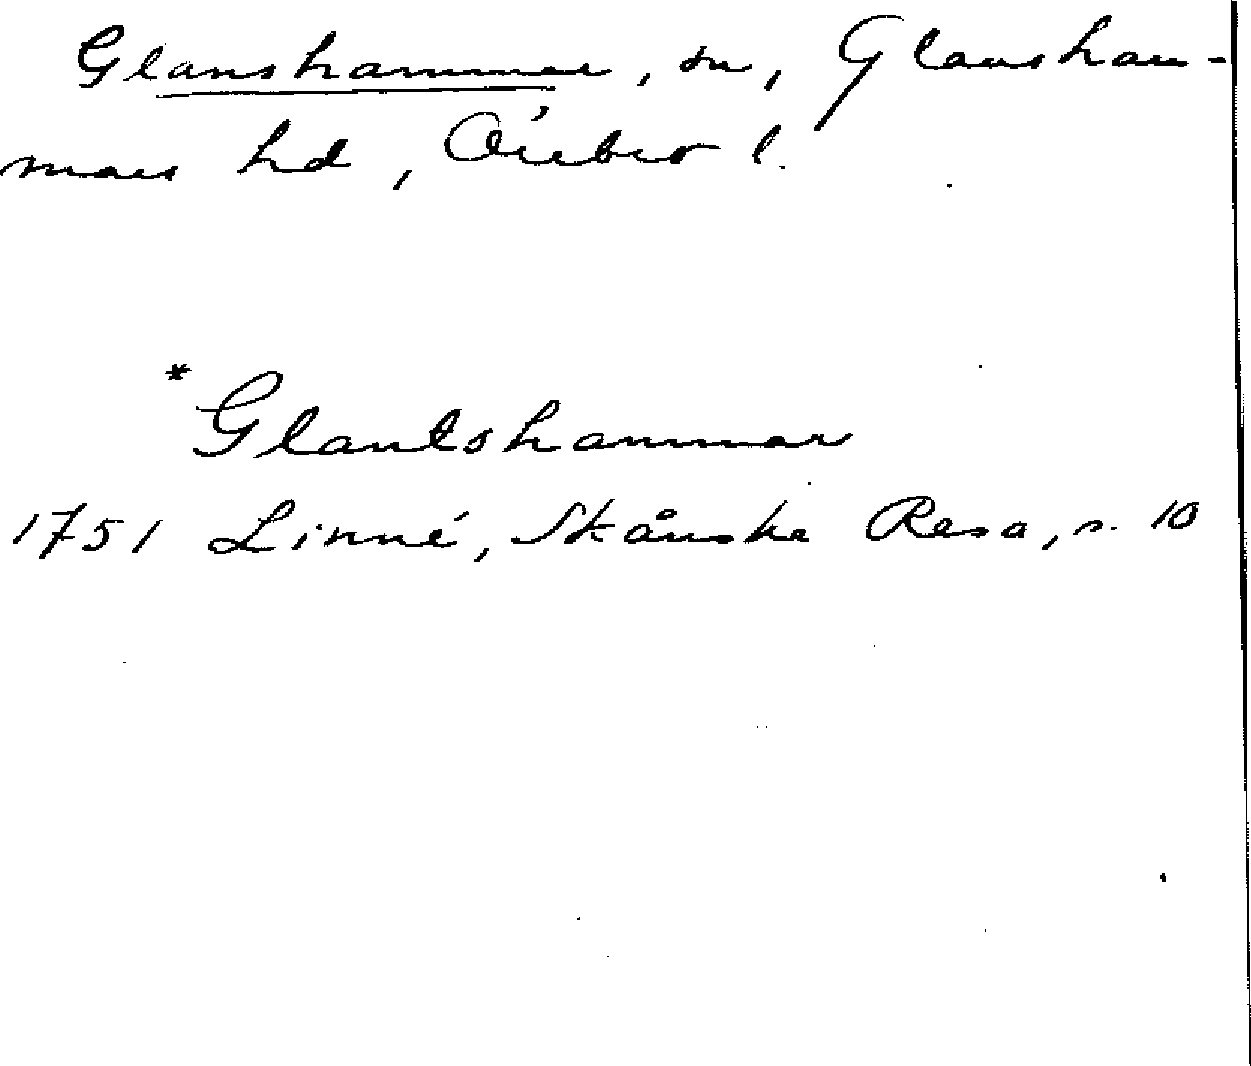 Glanshammar, sn, Glansham-
mars hd, Örebro l.
*Glantshammar
1751 Linné, Skånska Resa, s. 10